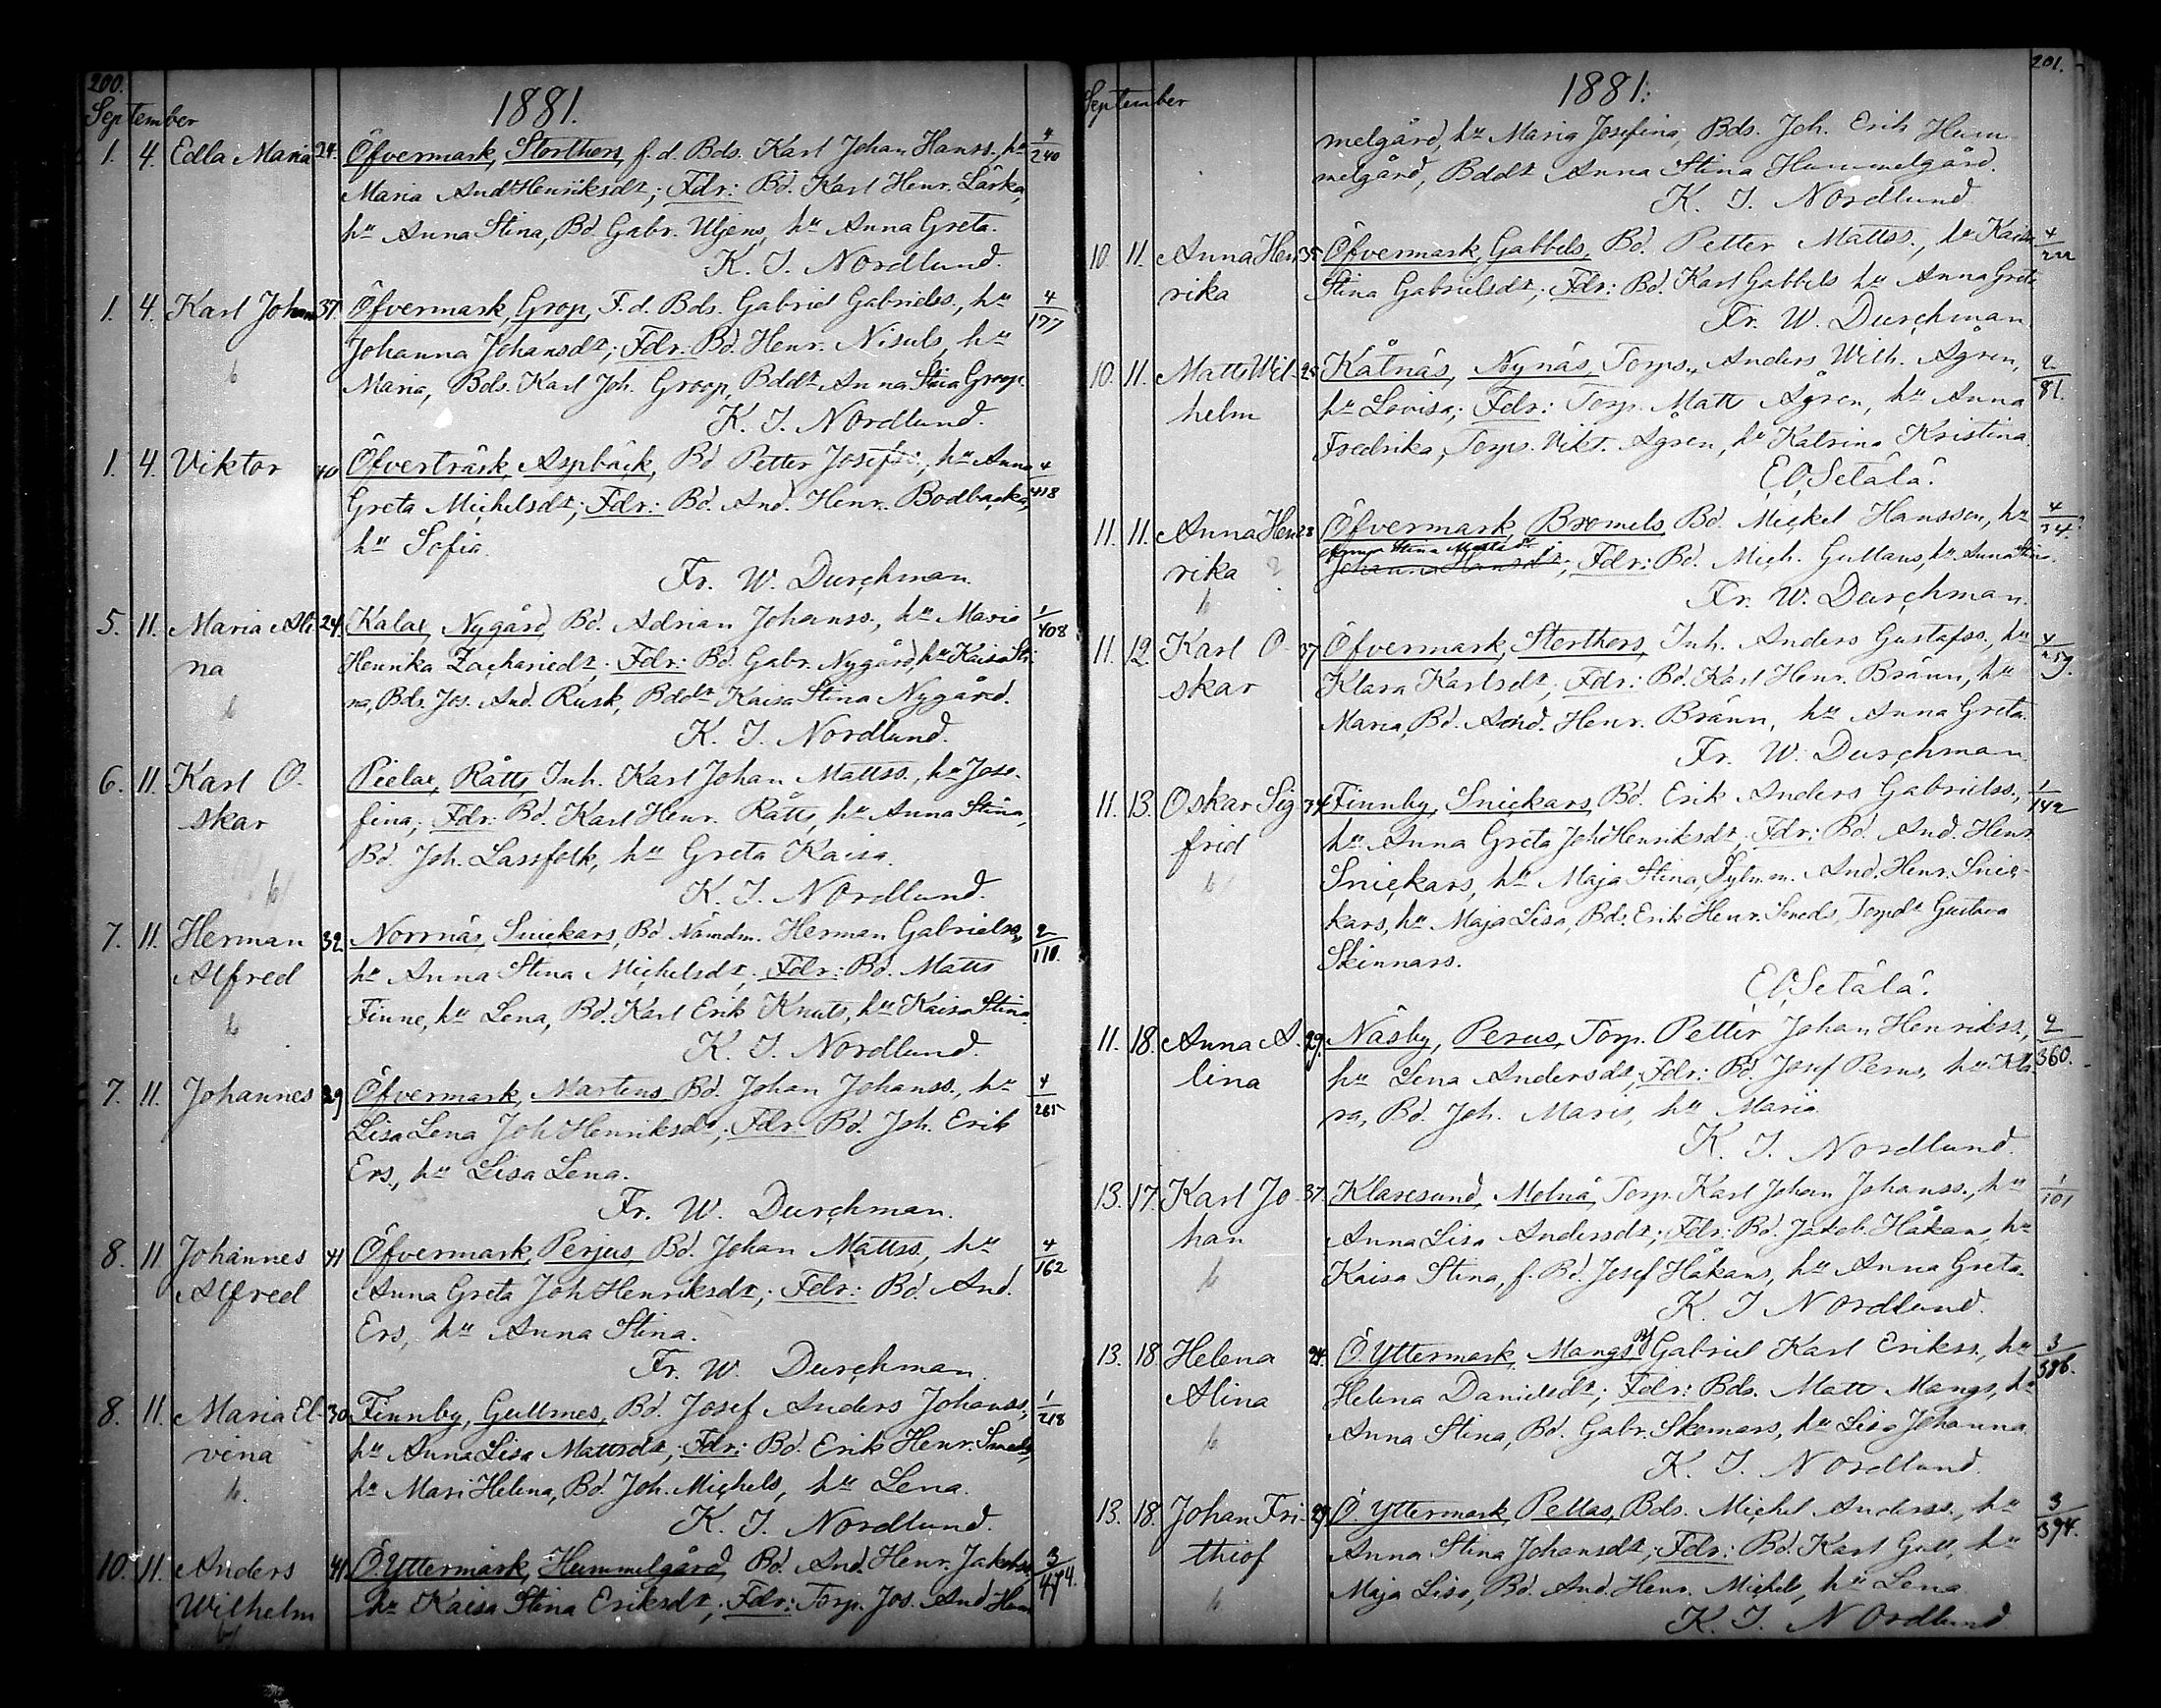 200.
September
1881.
1. 4. Edla Maria 24. Öfvermark, Storthors, f.d. Bds. Karl Johan Hanss., hu 4/240
Maria AndHenriksdr; Fdr: Bd. Karl Henr. Lärka,
hu Anna Stina, Bd. Gabr. Utjens, hu Anna Greta.
K. I. Nordlund.
1. 4. Karl Johan 37. Öfvermark, Grop, F.d. Bds. Gabriel Gabrielss., hu 4/177
Johanna Johansdr; Fdr: Bd. Henr. Nisuls, hu
Maria, Bds. Karl Joh. Groop, Bddr Anna Stina Groop.
K. I. Nordlund.
1. 4. Viktor 40 Öfverträsk, Aspbäck, Bd Petter Josefs., hu Anna 4/418
Greta Michelsdr; Fdr: Bd. And. Henr. Bodbacka,
hu Sofia.
Fr. W. Durchman.
5. 11. Maria Ali 24. Kalax, Nygård Bd. Adrian Johanss., hu Maria 1/408
na Henrika Zachariedr; Fdr: Bd. Gabr. Nygård, hu Kaisa Sti
na, Bds. Jos. And. Rusk, Bddr Kaisa Stina Nygård.
K. I. Nordlund.
6. 11. Karl O. Pielax, Rätts, Inh. Karl Johan Mattss., hu Jose-
skar fina; Fdr: Bd. Karl Henr. Rätts, hu Anna Stina,
Bd. Joh. Lassfolk, hu Greta Kaisa.
K. I. Nordlund.
7. 11. Herman 32 Norrnäs, Snickars, Bd Nämdm. Herman Gabrielss., 2/110.
Alfred hu Anna Stina Michelsdr; Fdr: Bd. Matts
Finne, hu Lena, Bd. Karl Erik Knuts, hu Kaisa Stina.
K. I. Nordlund.
7. 11. Johannes 29 Öfvermark, Martens Bd. Johan Johanss., hu 4/265
Lisa Lena JohHenriksdr; Fdr: Bd. Joh. Erik
Ers, hu Lisa Lena.
Fr. W. Durchman.
8. 11 Johannes 41 Öfvermark, Perjus, Bd. Johan Mattss., hu 4/162
Alfred Anna Greta JohHenriksdr; Fdr: Bd. And.
Ers, hu Anna Stina.
Fr. W. Durchman.
8. 11. Maria El- 30. Finnby, Gullmes, Bd. Josef Anders Johanss., 1/218
vina hu Anna Lisa Mattsdr; Fdr: Bd. Erik Henr. Smeds,
hu Mari Helena, Bd. Joh. Michels, hu Lena.
K. I. Nordlund.
10. 11. Anders 41. Ö. Yttermark, Hummelgård, Bd. And. Henr. Jakobss. 3/474.
Wilhelm hu Kaisa Stina Eriksdr; Fdr: Torp. Jos. And Hum
201.
September
1881.
melgård, hu Maria Josefina, Bds. Joh. Erik Hum-
melgård, Bddr Anna Stina Hummelgård.
K. I. Nordlund
10. 11. Anna Hen 35 Öfvermark, Gabbels, Bd. Petter Mattss., hu Kaisa
rika Stina Gabrielsdr; Fdr: Bd. Karl Gabbels hu Anna Greta
Fr. W. Durchman.
10. 11. Matts Wil- 25 Kåtnäs, Nynäs, Torps. Anders Wilh. Ågren, 2/81.
helm hu Lovisa; Fdr: Torp. Matts Ågren, hu Anna
Fredrika, Torps. Vikt. Ågren, hu Katrina Kristina
E O Setälä.
11. 11. Anna Hen 28 Öfvermark Bromels, Bd. Mickel Hansson, hu 4/34.
rika Johanna Hansdr; Fdr: Bd. Mich. Gullans, hu Anna Stina.
Fr. W. Durchman.
11. 12. Karl O- 37 Öfvermark, Storthors, Inh. Anders Gustafss., hu 4/259.
skar Klara Karlsdr; Fdr: Bd. Karl Henr. Bränn, hu
Maria, Bd. And. Henr. Bränn, hu Anna Greta.
Fr. W. Durchman
11. 13. Oskar Sig 34. Finnby, Snickars Bd. Erik Anders Gabrielss., 1/142
frid hu Anna Greta JohHenriksdr; Fdr: Bd. And. Henr.
Snickars, hu Maja Stina, Sytn.m. And. Henr. Snic-
kars, hu Maja Lisa, Bds. Erik Henr. Smeds, Torpdr Gustava
Skinnars.
E O Setälä.
11. 18. Anna A- 29. Näsby, Perus, Torp. Petter Johan Henrikss., 2/360.
lina hu Lena Andersdr; Fdr: Bd. Josef Perus, hu Kla
ra, Bd. Joh. Maris, hu Maria.
K. I. Nordlund.
13. 17. Karl Jo- 37. Klaresund, Molnå, Torp. Karl Johan Johanss., hu 1/101
han Anna Lisa Andersdr; Fdr: Bd. Jakob Håkans, hu
Kaisa Stina, f. Bd. Josef Håkans, hu Anna Greta.
K. I Nordlund.
13. 18 Helena 24. Ö. Yttermark, Mangs Gabriel Karl Erikss., hu 3/386.
Alina Helena Danielsdr; Fdr: Bds. Matts Mangs, hu
Anna Stina, Bd. Gabr. Skomars, hu Lisa Johanna
K. I. Nordlund.
13. 18. Johan Fri- 29 Ö. Yttermark, Pellas, Bds. Michel Anderss., hu 3/394.
thiof Anna Stina Johansdr; Fdr: Bd. Karl Gull, hu
Maja Lisa, Bd. And. Henr. Michels, hu Lena
K. I. Nordlund